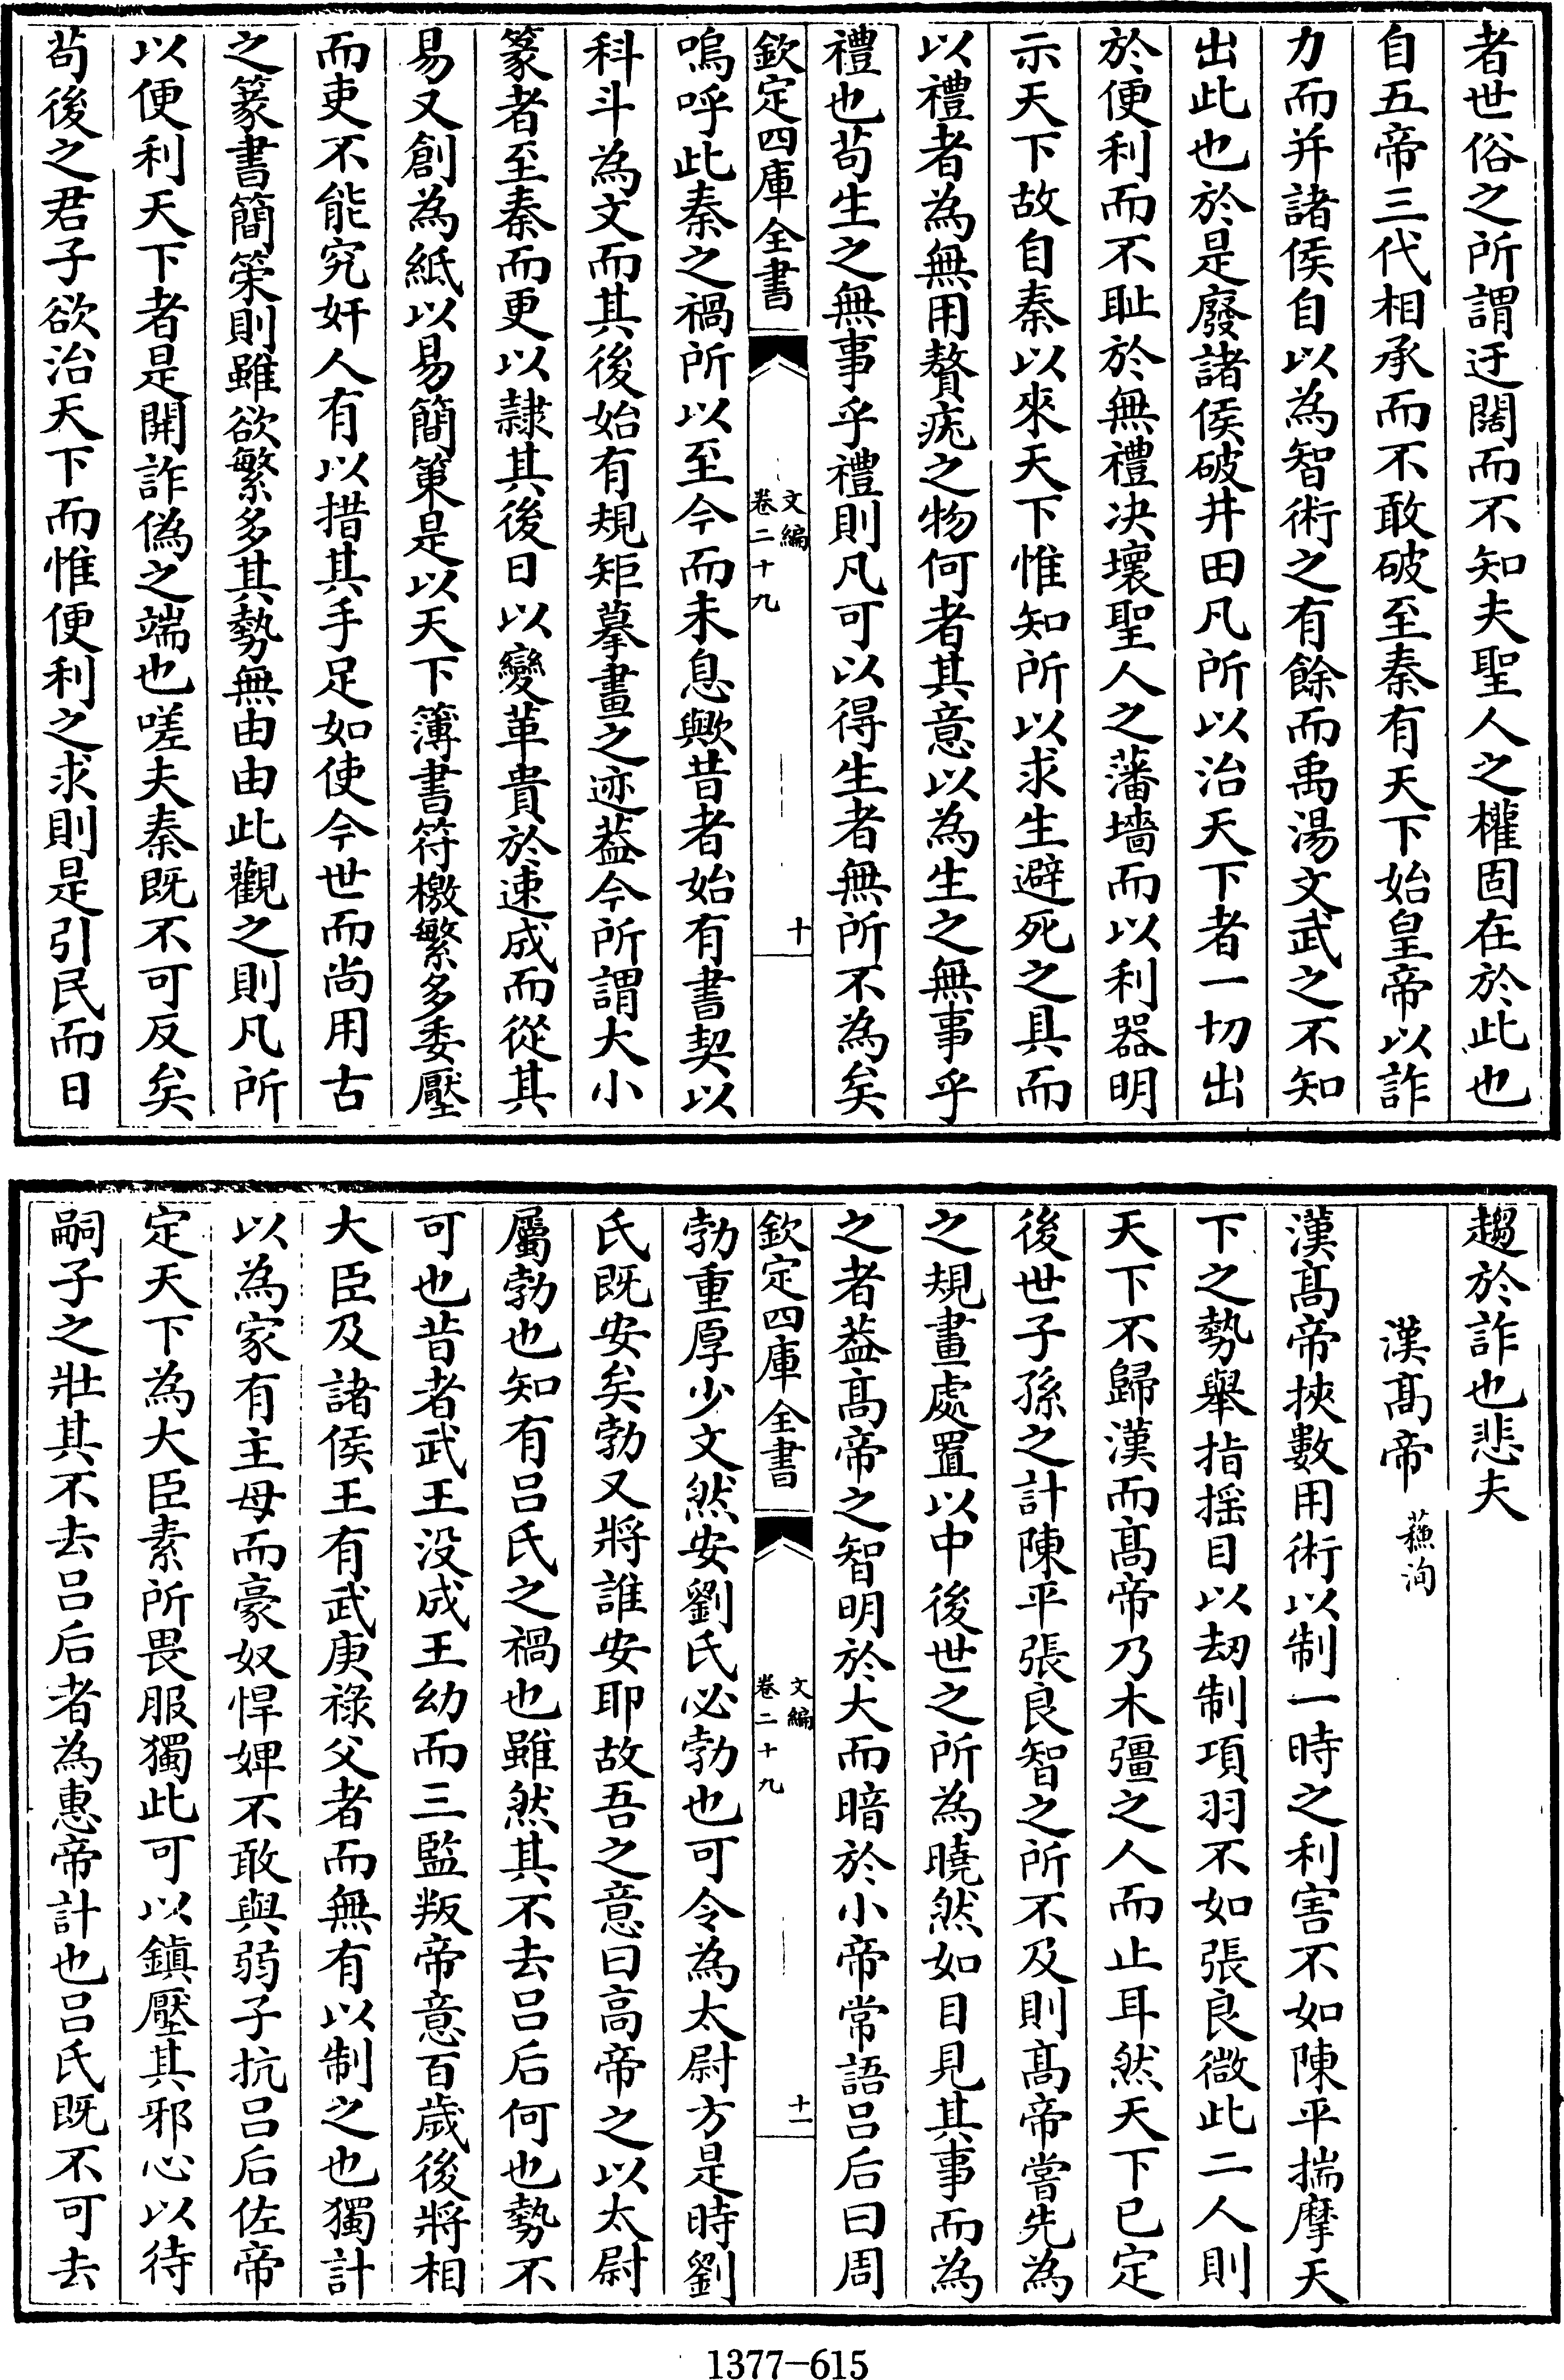 者世俗之所謂迂闊而不知夫聖人之權固在於此也
自五帝三代相承而不敢破至秦有天下始皇帝以詐
力而并諸侯自以為智術之有餘而禹湯文武之不知
出此也於是廢諸侯破井田凡所以治天下者一切出
於便利而不耻於無禮决壞聖人之藩墻而以利器明
示天下故自秦以來天下惟知所以求生避死之具而
以禮者為無用贅疣之物何者其意以為生之無事乎
禮也苟生之無事乎禮則凡可以得生者無所不為矣
欽定四庫全書
文編
卷二十九
十
嗚呼此秦之禍所以至今而未息歟昔者始有書契以
科斗為文而其後始有規矩摹畫之迹葢今所謂大小
篆者至秦而更以隸其後日以變革貴於速成而從其
易又創為紙以易簡策是以天下簿書符檄繁多委壓
而吏不能究奸人有以措其手足如使今世而尚用古
之篆書簡策則雖欲繁多其勢無由由此觀之則凡所
以便利天下者是開詐偽之端也嗟夫秦既不可反矣
苟後之君子欲治天下而惟便利之求則是引民而日
趨於詐也悲夫
漢髙帝 蘇洵
漢髙帝挾數用術以制一時之利害不如陳平揣摩天
下之勢舉指揺目以刼制項羽不如張良微此二人則
天下不歸漢而髙帝乃木彊之人而止耳然天下已定
後世子孫之計陳平張良智之所不及則髙帝嘗先為
之規畫處置以中後世之所為曉然如目見其事而為
之者葢髙帝之智明於大而暗於小帝常語吕后曰周
欽定四庫全書
文編
卷二十九
十一
勃重厚少文然安劉氏必勃也可令為太尉方是時劉
氏既安矣勃又將誰安耶故吾之意曰高帝之以太尉
屬勃也知有吕氏之禍也雖然其不去吕后何也勢不
可也昔者武王没成王幼而三監叛帝意百歲後將相
大臣及諸侯王有武庚祿父者而無有以制之也獨計
以為家有主母而豪奴悍婢不敢與弱子抗吕后佐帝
定天下為大臣素所畏服獨此可以鎮壓其邪心以待
嗣子之壯其不去吕后者為惠帝計也吕氏既不可去
1377-615